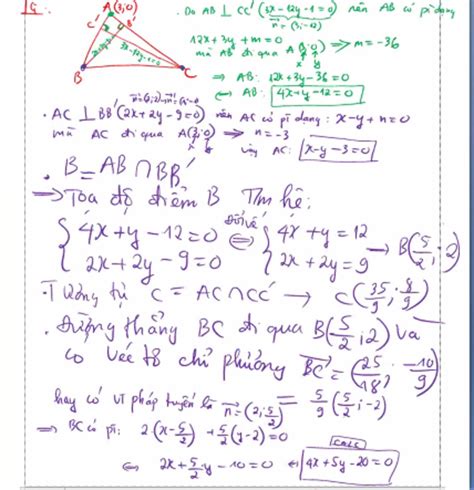 A(3;0)
C' B'
B C
Do AB ⊥ CC' (3x-12y-1=0) nên AB có pt dạng
n=(3;-12)
12x+3y+m=0
mà AB đi qua A(3;0) ⇒ m=-36
⇒ AB: 12x+3y-36=0
⇔ AB: 4x+y-12=0
. AC ⊥ BB' (2x+2y-9=0) nên AC có pt dạng: x-y+n=0
mà AC đi qua A(3;0) ⇒ n=-3
vậy AC: x-y-3=0
. B=AB∩BB'
⇒ Tọa độ điểm B Tm hệ:
{4x+y-12=0 ⇔ {4x+y=12
{2x+2y-9=0 {2x+2y=9 → B(5/2;2)
Tương tự C=AC∩CC' → C(35/9;8/9)
. Đường thẳng BC đi qua B(5/2;2) và
có véc tơ chỉ phương BC=(25/18;-10/9)
=5/9(5/2;-2)
hay có vt pháp tuyến là n=(2;5/2)
⇒ BC có pt: 2(x-5/2)+5/2(y-2)=0
CALC
⇔ 2x+5/2y-10=0 ⇔ 4x+5y-20=0